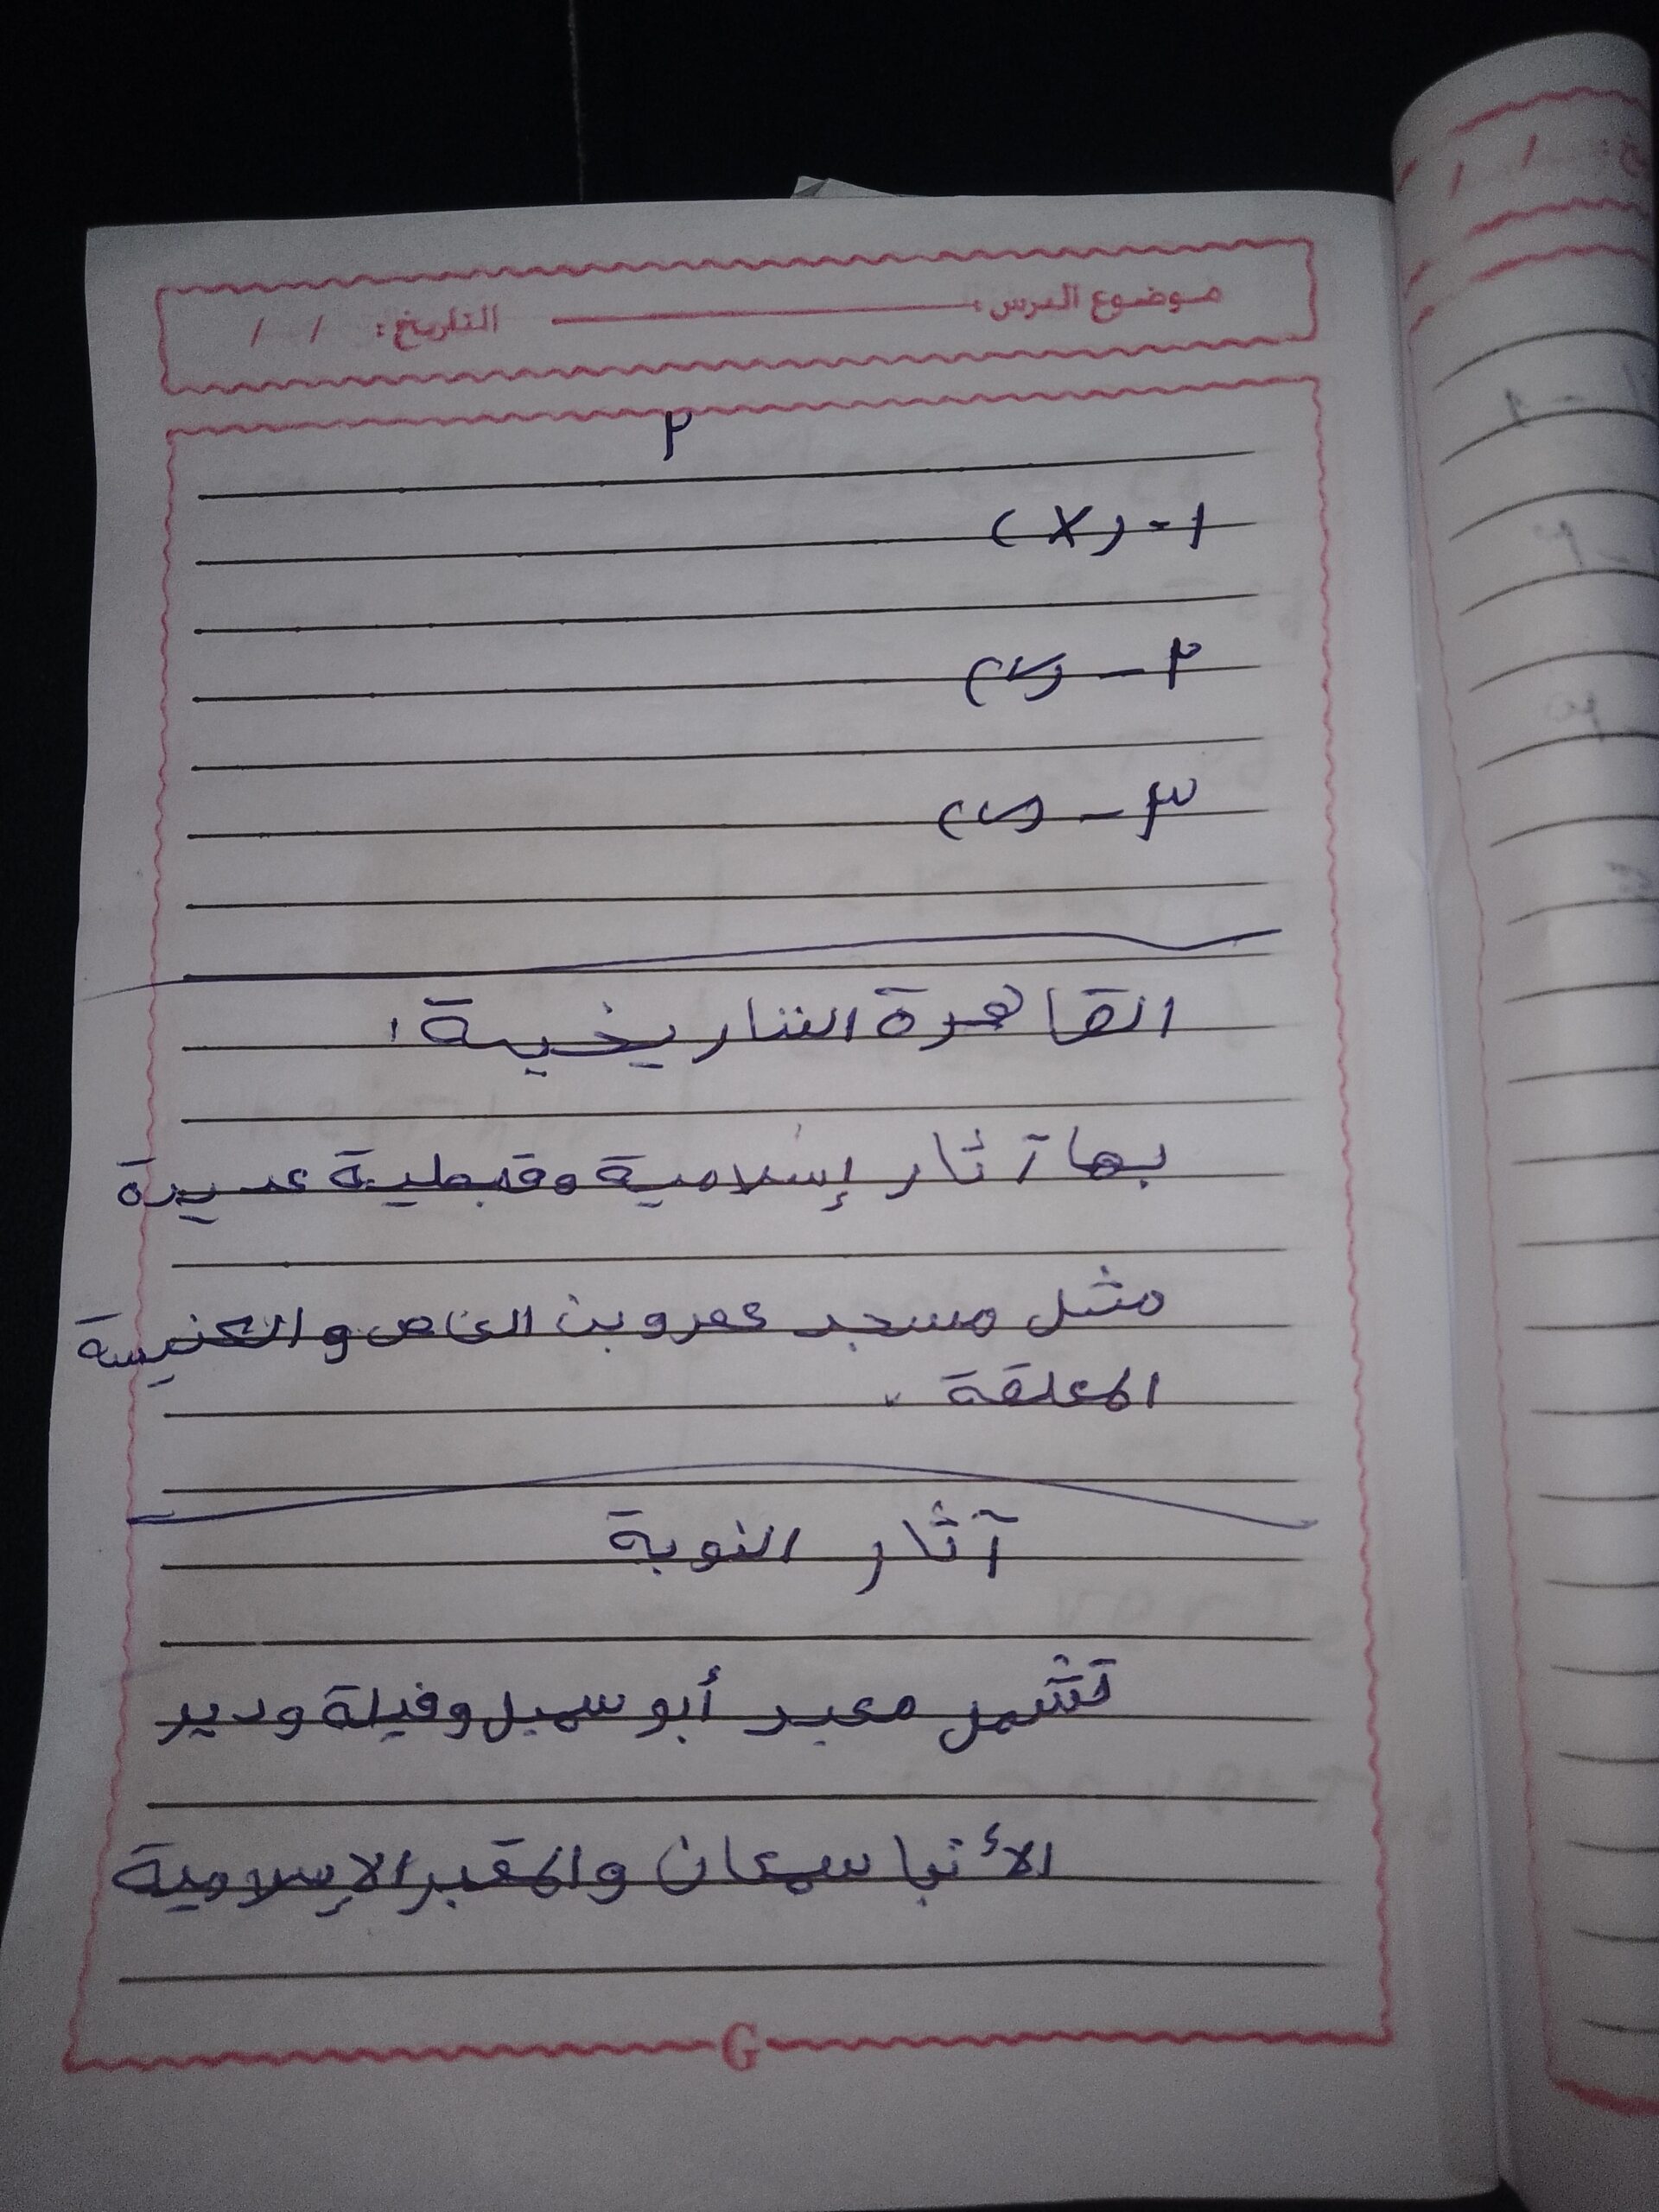 موضوع الدرس: التاريخ: / /
٢
١- (X)
٢- (✓)
٣- (✓)
القاهرة التاريخية:
بها آثار إسلامية وقبطية عديدة
مثل مسجد عمرو بن العاص والكنيسة
المعلقة .
آثار النوبة
تشمل معبد أبو سمبل وفيلة ودير
الأنبا سمعان والمقبر الإسلامية
G